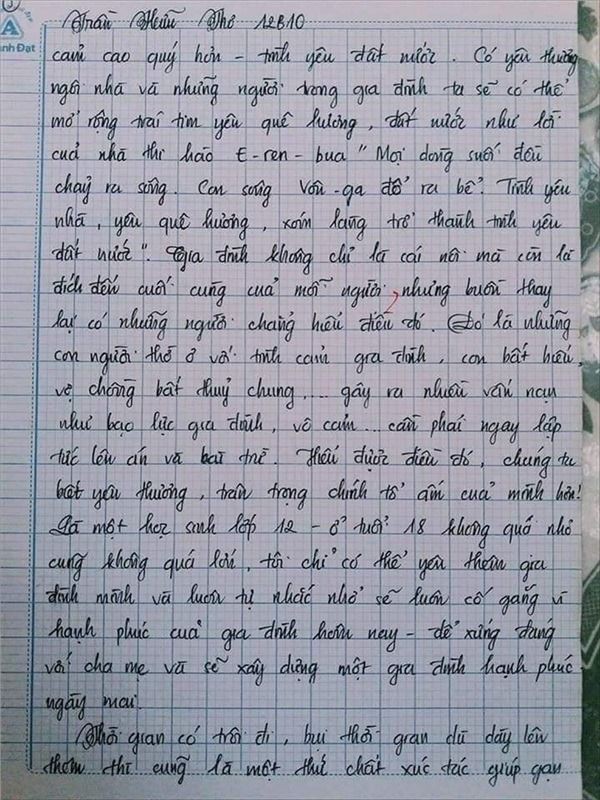 A
nh Đạt
Trần Hữu Thơ 12B10
cảm cao quý hơn - tình yêu đất nước. Có yêu thương
ngôi nhà và những người trong gia đình ta sẽ có thể
mở rộng trái tim yêu quê hương, đất nước như lời
của nhà thi hào E-ren-bua "Mọi dòng suối đều
chảy ra sông. Con sông Vôn-ga đổ ra bể. Tình yêu
nhà, yêu quê hương, xóm làng trở thành tình yêu
đất nước". Gia đình không chỉ là cái nôi mà còn là
đích đến cuối cùng của mỗi người, nhưng buồn thay
lại có những người chẳng hiểu điều đó. Đó là những
con người thờ ơ với tình cảm gia đình, con bất hiếu,
vợ chồng bất thuỷ chung.... gây ra nhiều vấn nạn
như bạo lực gia đình, vô cảm... cần phải ngay lập
tức lên án và bài trừ. Hiểu được điều đó, chúng ta
biết yêu thương, trân trọng chính tổ ấm của mình hơn!
Là một học sinh lớp 12 - ở tuổi 18 không quá nhỏ
cũng không quá lớn, tôi chỉ có thể yêu thêm gia
đình mình và luôn tự nhắc nhở sẽ luôn cố gắng vì
hạnh phúc của gia đình hôm nay - để xứng đáng
với cha mẹ và sẽ xây dựng một gia đình hạnh phúc
ngày mai.
Thời gian có trôi đi, bụi thời gian dù dày lên
thêm thì cũng là một thứ chất xúc tác giúp gạn